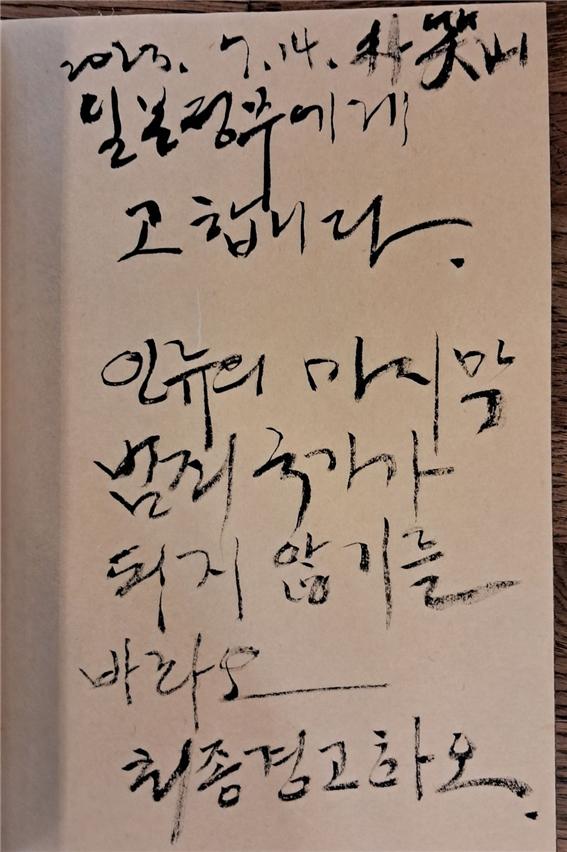 2023. 7.14. 朴笑山
일본정부에게
고합니다.
인류의 마지막
범죄국가가
되지 않기를
바라오
최종경고하오.